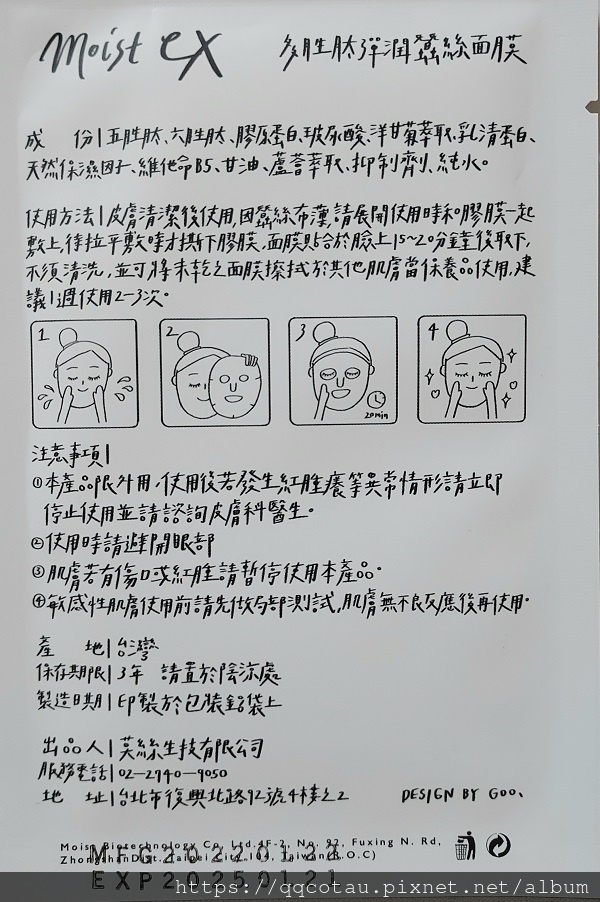 Moist EX 多胜肽彈潤蠶絲面膜
成 份|五胜肽、六胜肽、膠原蛋白、玻尿酸、洋甘菊萃取、乳清蛋白、
天然保濕因子、維他命B5、甘油、蘆薈萃取、抑制劑、純水。
使用方法|皮膚清潔後使用,因蠶絲布薄,請展開使用時和膠膜一起
敷上,待拉平敷時才撕下膠膜,面膜貼合於臉上15~20分鐘後取下,
不須清洗,並可將未乾之面膜擦拭於其他肌膚當保養品使用,建
議1週使用2-3次。
1 2 3 4
20min
注意事項|
①本產品限外用,使用後若發生紅腫癢等異常情形請立即
停止使用並請諮詢皮膚科醫生。
②使用時請避開眼部
③肌膚若有傷口或紅腫請暫停使用本產品.
④敏感性肌膚使用前請先做局部測試,肌膚無不良反應後再使用.
產 地|台灣
保存期限|3年 請置於陰涼處
製造日期|印製於包裝鋁袋上
出品人|莫絲生技有限公司
服務電話|02-2740-9050
地 址|台北市復興北路92號4樓之2 DESIGN BY GOO.
Moist Biotechnology Co., Ltd.4F-2, No. 92, Fuxing N. Rd,
Zhongshan Dist., Taipei City 104, Taiwan(R.O.C)
MFG20220122
EXP20250121
https://qqcotau.pixnet.net/album